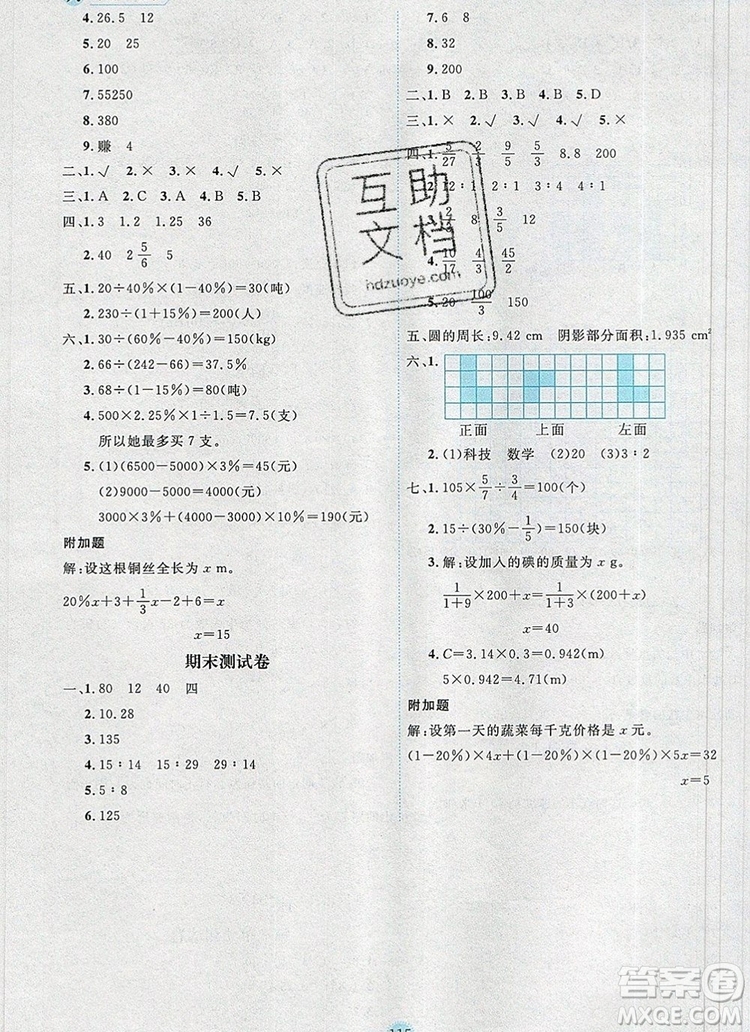 4. 26.5 12
5. 20 25
6. 100
7. 55250
8. 380
9. 赚 4
二、1. √ 2. × 3. √ 4. √ 5. ×
三、1. A 2. C 3. A 4. D 5. A
四、1. 3 1.2 1.25 36
2. 40 2 5/6 5
五、1. 20÷40%×(1-40%)=30(吨)
2. 230÷(1+15%)=200(人)
六、1. 30÷(60%-40%)=150(kg)
2. 66÷(242-66)=37.5%
3. 68÷(1-15%)=80(吨)
4. 500×2.25%×1÷1.5=7.5(支)
所以她最多买 7 支。
5. (1)(6500-5000)×3%=45(元)
(2)9000-5000=4000(元)
3000×3%+(4000-3000)×10%=190(元)
附加题
解:设这根铜丝全长为 x m。
20%x+3+1/3x-2+6=x
x=15
期末测试卷
一、1. 80 12 40 四
2. 10.28
3. 135
4. 15∶14 15∶29 14∶29
5. 5∶8
6. 125
7. 6 8
8. 32
9. 200
二、1. B 2. B 3. B 4. B 5. D
三、1. × 2. √ 3. √ 4. √ 5. ×
四、1. 5/27 2/3 9/5 5/3 8.8 200
2. 12∶1 2∶1 3∶4 4∶1
8/5 8/15 12
4. 10/17 4/3 45/2
5. 20 100/3 150
五、圆的周长:9.42 cm 阴影部分面积:1.935 cm²
六、1.
正面 上面 左面
2. (1)科技 数学 (2)20 (3)3∶2
七、1. 105×5/7÷3/4=100(个)
2. 15÷(30%-1/5)=150(块)
3. 解:设加入的碘的质量为 x g。
1/(1+9)×200+x=1/(1+3)×(200+x)
x=40
4. C=3.14×0.3=0.942(m)
5×0.942=4.71(m)
附加题
解:设第一天的蔬菜每千克价格是 x 元。
(1-20%)×4x+(1-20%)×(1-20%)×5x=32
x=5
互助文档
hdzuoye.com
115
答案圈
MXQE.COM